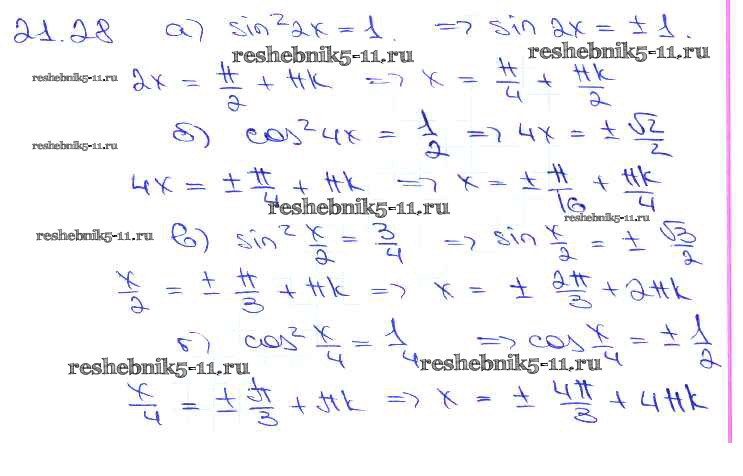 21.28 а) sin²2x = 1. => sin 2x = ±1.
reshebnik5-11.ru reshebnik5-11.ru
reshebnik5-11.ru 2x = π/2 + πk => x = π/4 + πk/2
б) cos²4x = 1/2 => 4x = ± √2/2
reshebnik5-11.ru
4x = ± π/4 + πk => x = ± π/16 + πk/4
reshebnik5-11.ru reshebnik5-11.ru
reshebnik5-11.ru в) sin² x/2 = 3/4 => sin x/2 = ± √3/2
x/2 = ± π/3 + πk => x = ± 2π/3 + 2πk
б) cos² x/4 = 1/4 => cos x/4 = ± 1/2
reshebnik5-11.ru reshebnik5-11.ru
x/4 = ± π/3 + πk => x = ± 4π/3 + 4πk